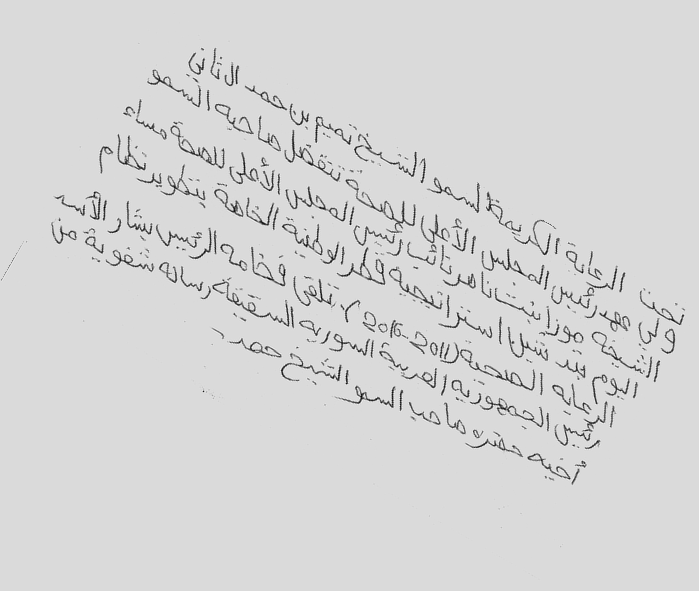 تحت الرعاية الكريمة لسمو الشيخ تميم بن حمد ال ثاني
ولي عهد رئيس المجلس الأعلى للصحة تتفضل صاحبه السمو
الشيخه موزا بنت ناصر نائب رئيس المجلس الأعلى للصحة مساء
اليوم بتدشين استراتيجيه قطر الوطنية الخاصة بتطوير نظام
الرعايه الصحية تلقى فخامه الرئيس بشار الأسد
رئيس الجمهورية العربية السورية الشقيقة رسالة شفوية من
أخيه حضره صاحب السمو الشيخ حمد